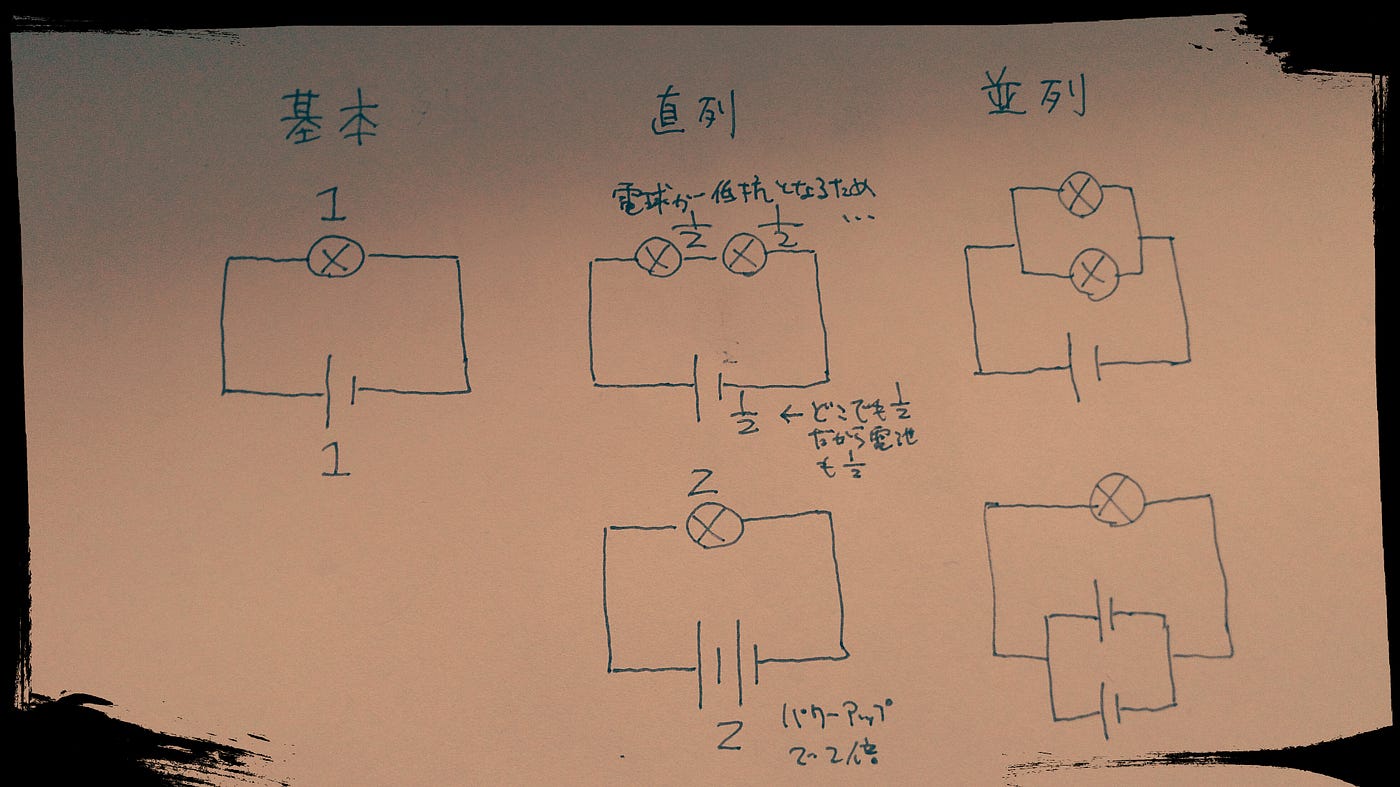 基本
直列
並列
1
1
電球が低抗となるため
…
1/2
1/2
1/2
←どこでも1/2
だから電池
も1/2
2
2
パワーアップ
で2倍